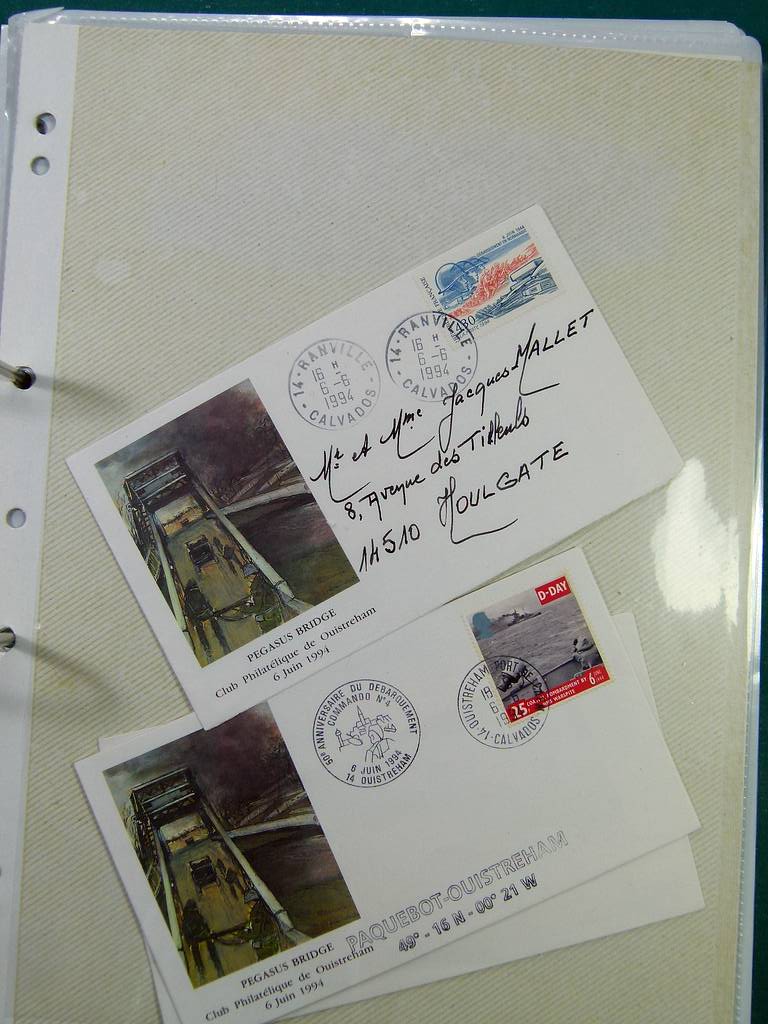 6 JUIN 1944
DEBARQUEMENT EN NORMANDIE
FRANÇAISE
14-RANVILLE
16 H
6-6
1994
- CALVADOS -
14-RANVILLE
16 H
6-6
1994
- CALVADOS -
Mr et Mme Jacques MALLET
8, Avenue des Tilleuls
14510 HOULGATE
PEGASUS BRIDGE
Club Philatélique de Ouistreham
6 Juin 1994
D-DAY
25
6 JUNE
HMS WARSPITE
50e ANNIVERSAIRE DU DEBARQUEMENT
COMMANDO N°4
6 JUIN 1994
14 OUISTREHAM
14-OUISTREHAM PORT DE
CALVADOS
PAQUEBOT-OUISTREHAM
49° - 16 N - 00° 21 W
PEGASUS BRIDGE
Club Philatélique de Ouistreham
6 Juin 1994